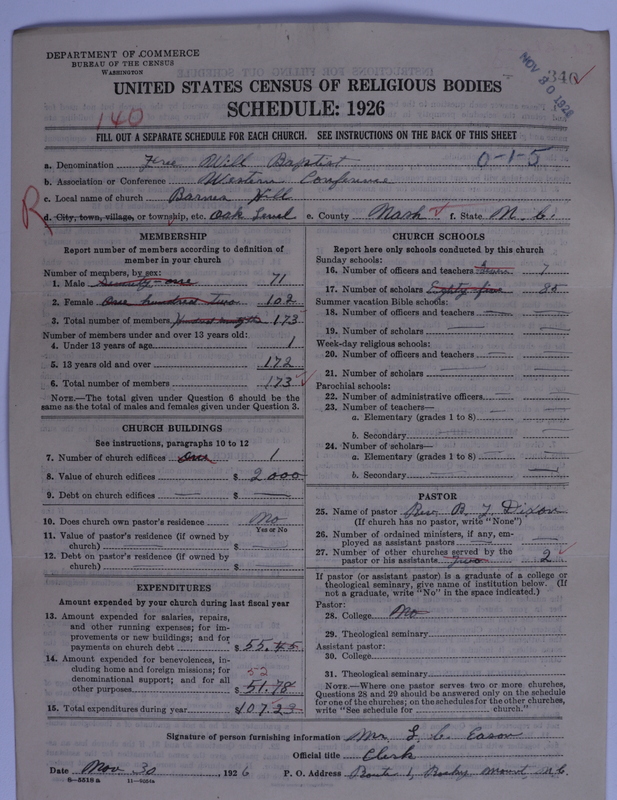 DEPARTMENT OF COMMERCE
BUREAU OF THE CENSUS
WASHINGTON
NOV 30 1926
340
UNITED STATES CENSUS OF RELIGIOUS BODIES
SCHEDULE: 1926
140
FILL OUT A SEPARATE SCHEDULE FOR EACH CHURCH. SEE INSTRUCTIONS ON THE BACK OF THIS SHEET
a. Denomination Free Will Baptist 0-1-5
b. Association or Conference Western Conference
c. Local name of church Barnes Hill
R
d. City, town, village, or township, etc. Oak Level e. County Nash f. State N. C.
MEMBERSHIP
Report number of members according to definition of
member in your church
Number of members, by sex:
1. Male Seventy-one 71
2. Female One hundred two 102
3. Total number of members 173
Number of members under and over 13 years old:
4. Under 13 years of age 1
5. 13 years old and over 172
6. Total number of members 173
NOTE.—The total given under Question 6 should be
same as the total of males and females given under Question 3.
CHURCH BUILDINGS
See instructions, paragraphs 10 to 12
7. Number of church edifices One 1
8. Value of church edifices $ 2000
9. Debt on church edifices $
10. Does church own pastor's residence No
Yes or No
11. Value of pastor's residence (if owned by
church) $
12. Debt on pastor's residence (if owned by
church) $
EXPENDITURES
Amount expended by your church during last fiscal year
13. Amount expended for salaries, repairs,
and other running expenses; for im-
provements or new buildings; and for
payments on church debt $ 55.45
14. Amount expended for benevolences, in-
cluding home and foreign missions; for
denominational support; and for all
other purposes 52 $ 51.78
15. Total expenditures during year $107.23
CHURCH SCHOOLS
Report here only schools conducted by this church
Sunday schools:
16. Number of officers and teachers Seven 7
17. Number of scholars Eighty five 85
Summer vacation Bible schools:
18. Number of officers and teachers
19. Number of scholars
Week-day religious schools:
20. Number of officers and teachers
21. Number of scholars
Parochial schools:
22. Number of administrative officers
23. Number of teachers—
a. Elementary (grades 1 to 8)
b. Secondary
24. Number of scholars—
a. Elementary (grades 1 to 8)
b. Secondary
PASTOR
25. Name of pastor Rev. B. T. Dixon
(If church has no pastor, write "None")
26. Number of ordained ministers, if any, em-
ployed as assistant pastors
27. Number of other churches served by the
pastor or his assistants Two 2
If pastor (or assistant pastor) is a graduate of a college or
theological seminary, give name of institution below. (If
not a graduate, write "No" in the space indicated.)
Pastor:
28. College No
29. Theological seminary
Assistant pastor:
30. College
31. Theological seminary
NOTE.—Where one pastor serves two or more churches,
Questions 28 and 29 should be answered only on the schedule
for one of the churches; on the schedules for the other churches,
write "See schedule for church."
Signature of person furnishing information Mr. L. C. Eason
Official title Clerk
Date Nov. 30, 1926 P. O. Address Route 1, Rocky Mount, N.C.